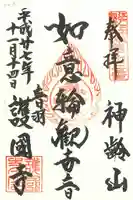 奉拝
神齢山
如意輪観世音
平成廿七年
十一月十四日
音羽
護国寺